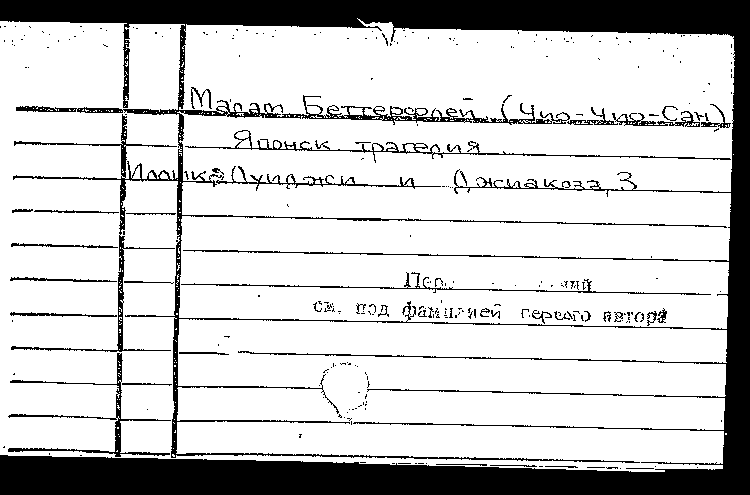 Мадам Беттерфлей. (Чио-Чио-Сан)
Японск. трагедия.
Иллика, Луиджи и Джиакоза, З
Пер.
см. под фамилией первого автора